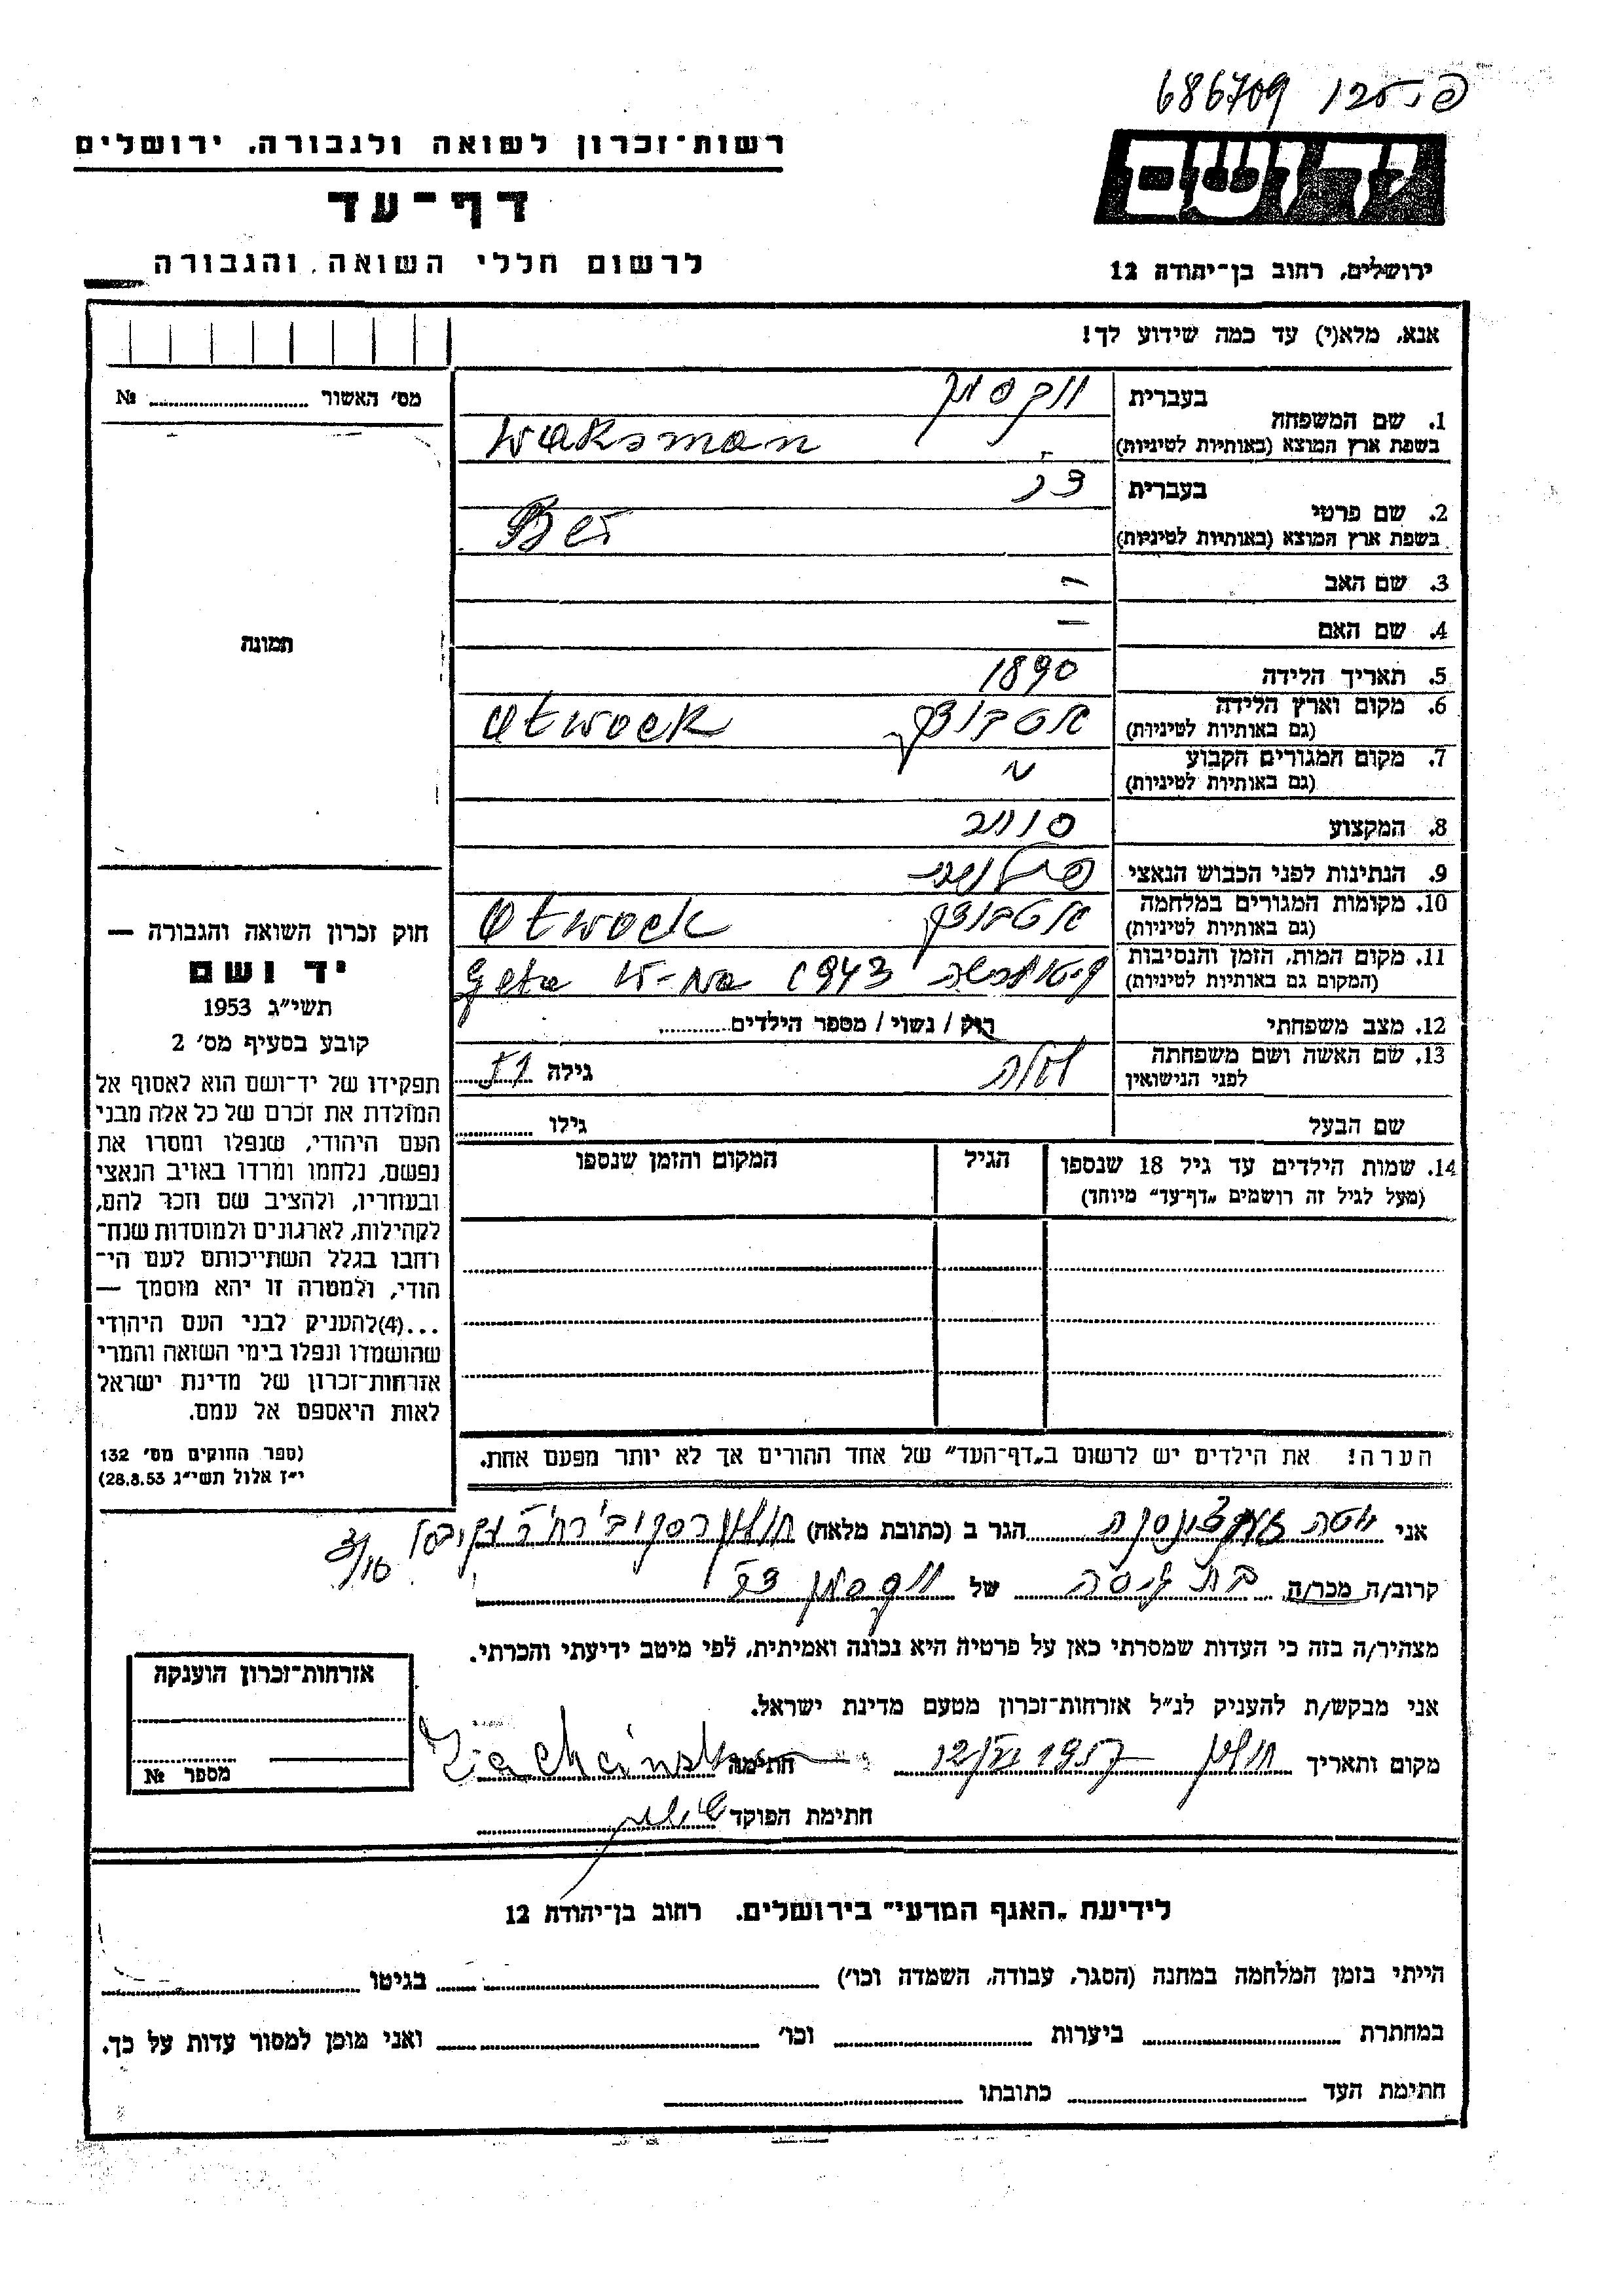 686709
רשות־זכרון לשואה ולגבורה. ירושלים
יד ושם
דף־עד
ירושלים, רחוב בן־יהודה 12
לרשום חללי השואה והגבורה
אנא, מלא(י) עד כמה שידוע לך!
מס׳ האשור № ........
תמונה
1. שם המשפחה
בעברית וקסמן
בשפת ארץ המוצא (באותיות לטיניות) Waksman
2. שם פרטי
בעברית
בשפת ארץ המוצא (באותיות לטיניות) Ber
3. שם האב —
4. שם האם —
5. תאריך הלידה 1890
6. מקום וארץ הלידה
(גם באותיות לטיניות) אטבוצק Otwock
7. מקום המגורים הקבוע
(גם באותיות לטיניות) "
8. המקצוע סוחר
9. הנתינות לפני הכבוש הנאצי פולנית
10. מקומות המגורים במלחמה
(גם באותיות לטיניות) אטבוצק Otwock
11. מקום המות, הזמן והנסיבות
(המקום גם באותיות לטיניות) 1943 Geto W-wa
12. מצב משפחתי רוק / נשוי / מספר הילדים........
13. שם האשה ושם משפחתה
לפני הנישואין
גילה
שם הבעל גילו ........
14. שמות הילדים עד גיל 18 שנספו
(מעל לגיל זה רושמים „דף־עד״ מיוחד)
הגיל
המקום והזמן שנספו
הערה! את הילדים יש לרשום ב„דף־העד״ של אחד ההורים אך לא יותר מפעם אחת.
חוק זכרון השואה והגבורה —
יד ושם
תשי״ג 1953
קובע בסעיף מס׳ 2
תפקידו של יד־ושם הוא לאסוף אל
המולדת את זכרם של כל אלה מבני
העם היהודי, שנפלו ומסרו את
נפשם, נלחמו ומרדו באויב הנאצי
ובעוזריו, ולהציב שם וזכר להם,
לקהילות, לארגונים ולמוסדות שנח־
רבו בגלל השתייכותם לעם הי־
הודי, ולמטרה זו יהא מוסמך —
...(4) להעניק לבני העם היהודי
שהושמדו ונפלו בימי השואה והמרי
אזרחות־זכרון של מדינת ישראל
לאות היאספם אל עמם.
(ספר החוקים מס׳ 132
י״ז אלול תשי״ג 28.8.53)
אני הגר ב (כתובת מלאה) חולון
קרוב/ה מכר/ה של וקסמן
מצהיר/ה בזה כי העדות שמסרתי כאן על פרטיה היא נכונה ואמיתית, לפי מיטב ידיעתי והכרתי.
אני מבקש/ת להעניק לנ״ל אזרחות־זכרון מטעם מדינת ישראל.
מקום ותאריך חולון 1957 חתימה
חתימת הפוקד
אזרחות־זכרון הוענקה
מספר №
לידיעת „האגף המדעי״ בירושלים. רחוב בן־יהודה 12
הייתי בזמן המלחמה במחנה (הסגר, עבודה, השמדה וכו׳) ........ בגיטו ........
במחתרת ........ ביערות ........ וכו׳ ........ ואני מוכן למסור עדות על כך.
חתימת העד ........ כתובתו ........